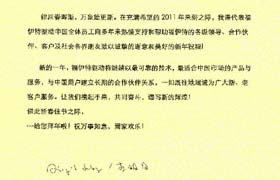 律回春晖渐，万象始更新。在充满希望的 2011 年来到之际，我谨代表福
伊特驱动中国全体员工向多年来热情支持和帮助福伊特的各级领导、合作伙
伴、客户及社会各界朋友致以诚挚的谢意和美好的新年祝福！
新的一年，福伊特驱动将继续以最可靠的技术，最适合中国市场的产品与
服务，与中国用户建立长期的合作伙伴关系，一如既往地竭诚为广大新、老
客户服务。让我们携起手来，共同奋斗，谱写新的辉煌！
值此新春佳节之际，
---给您拜年啦！祝万事如意、阖家欢乐！